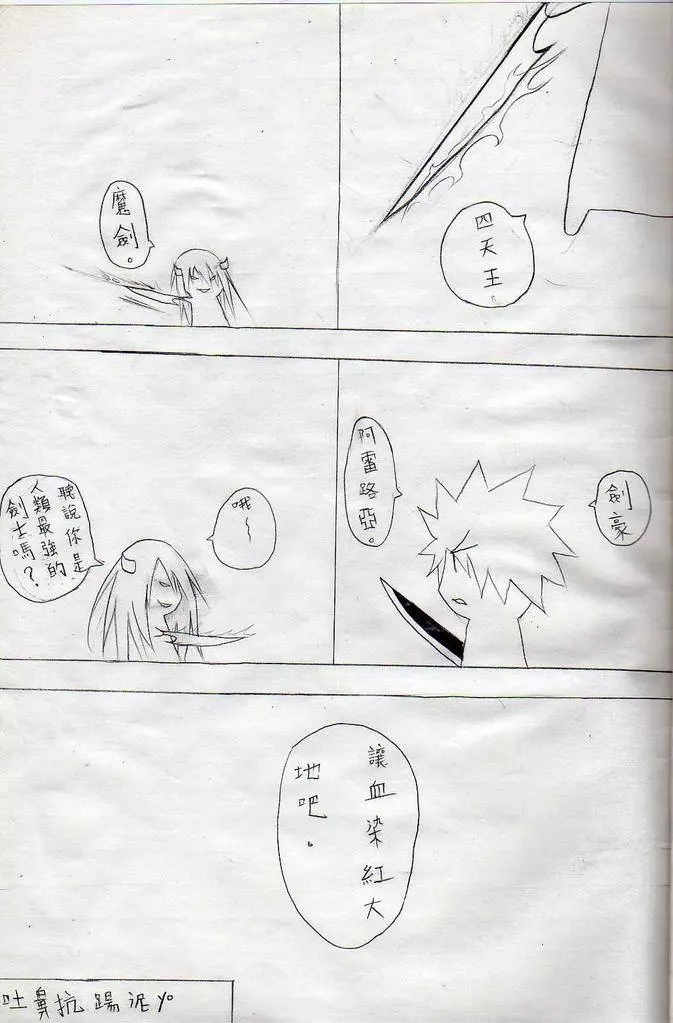 四天王
魔劍。
劍豪
阿雷路亞。
哦~
聽說你是
人類最強的
劍士嗎？
讓血染紅大
地吧。
吐鼻抗踢泥yo